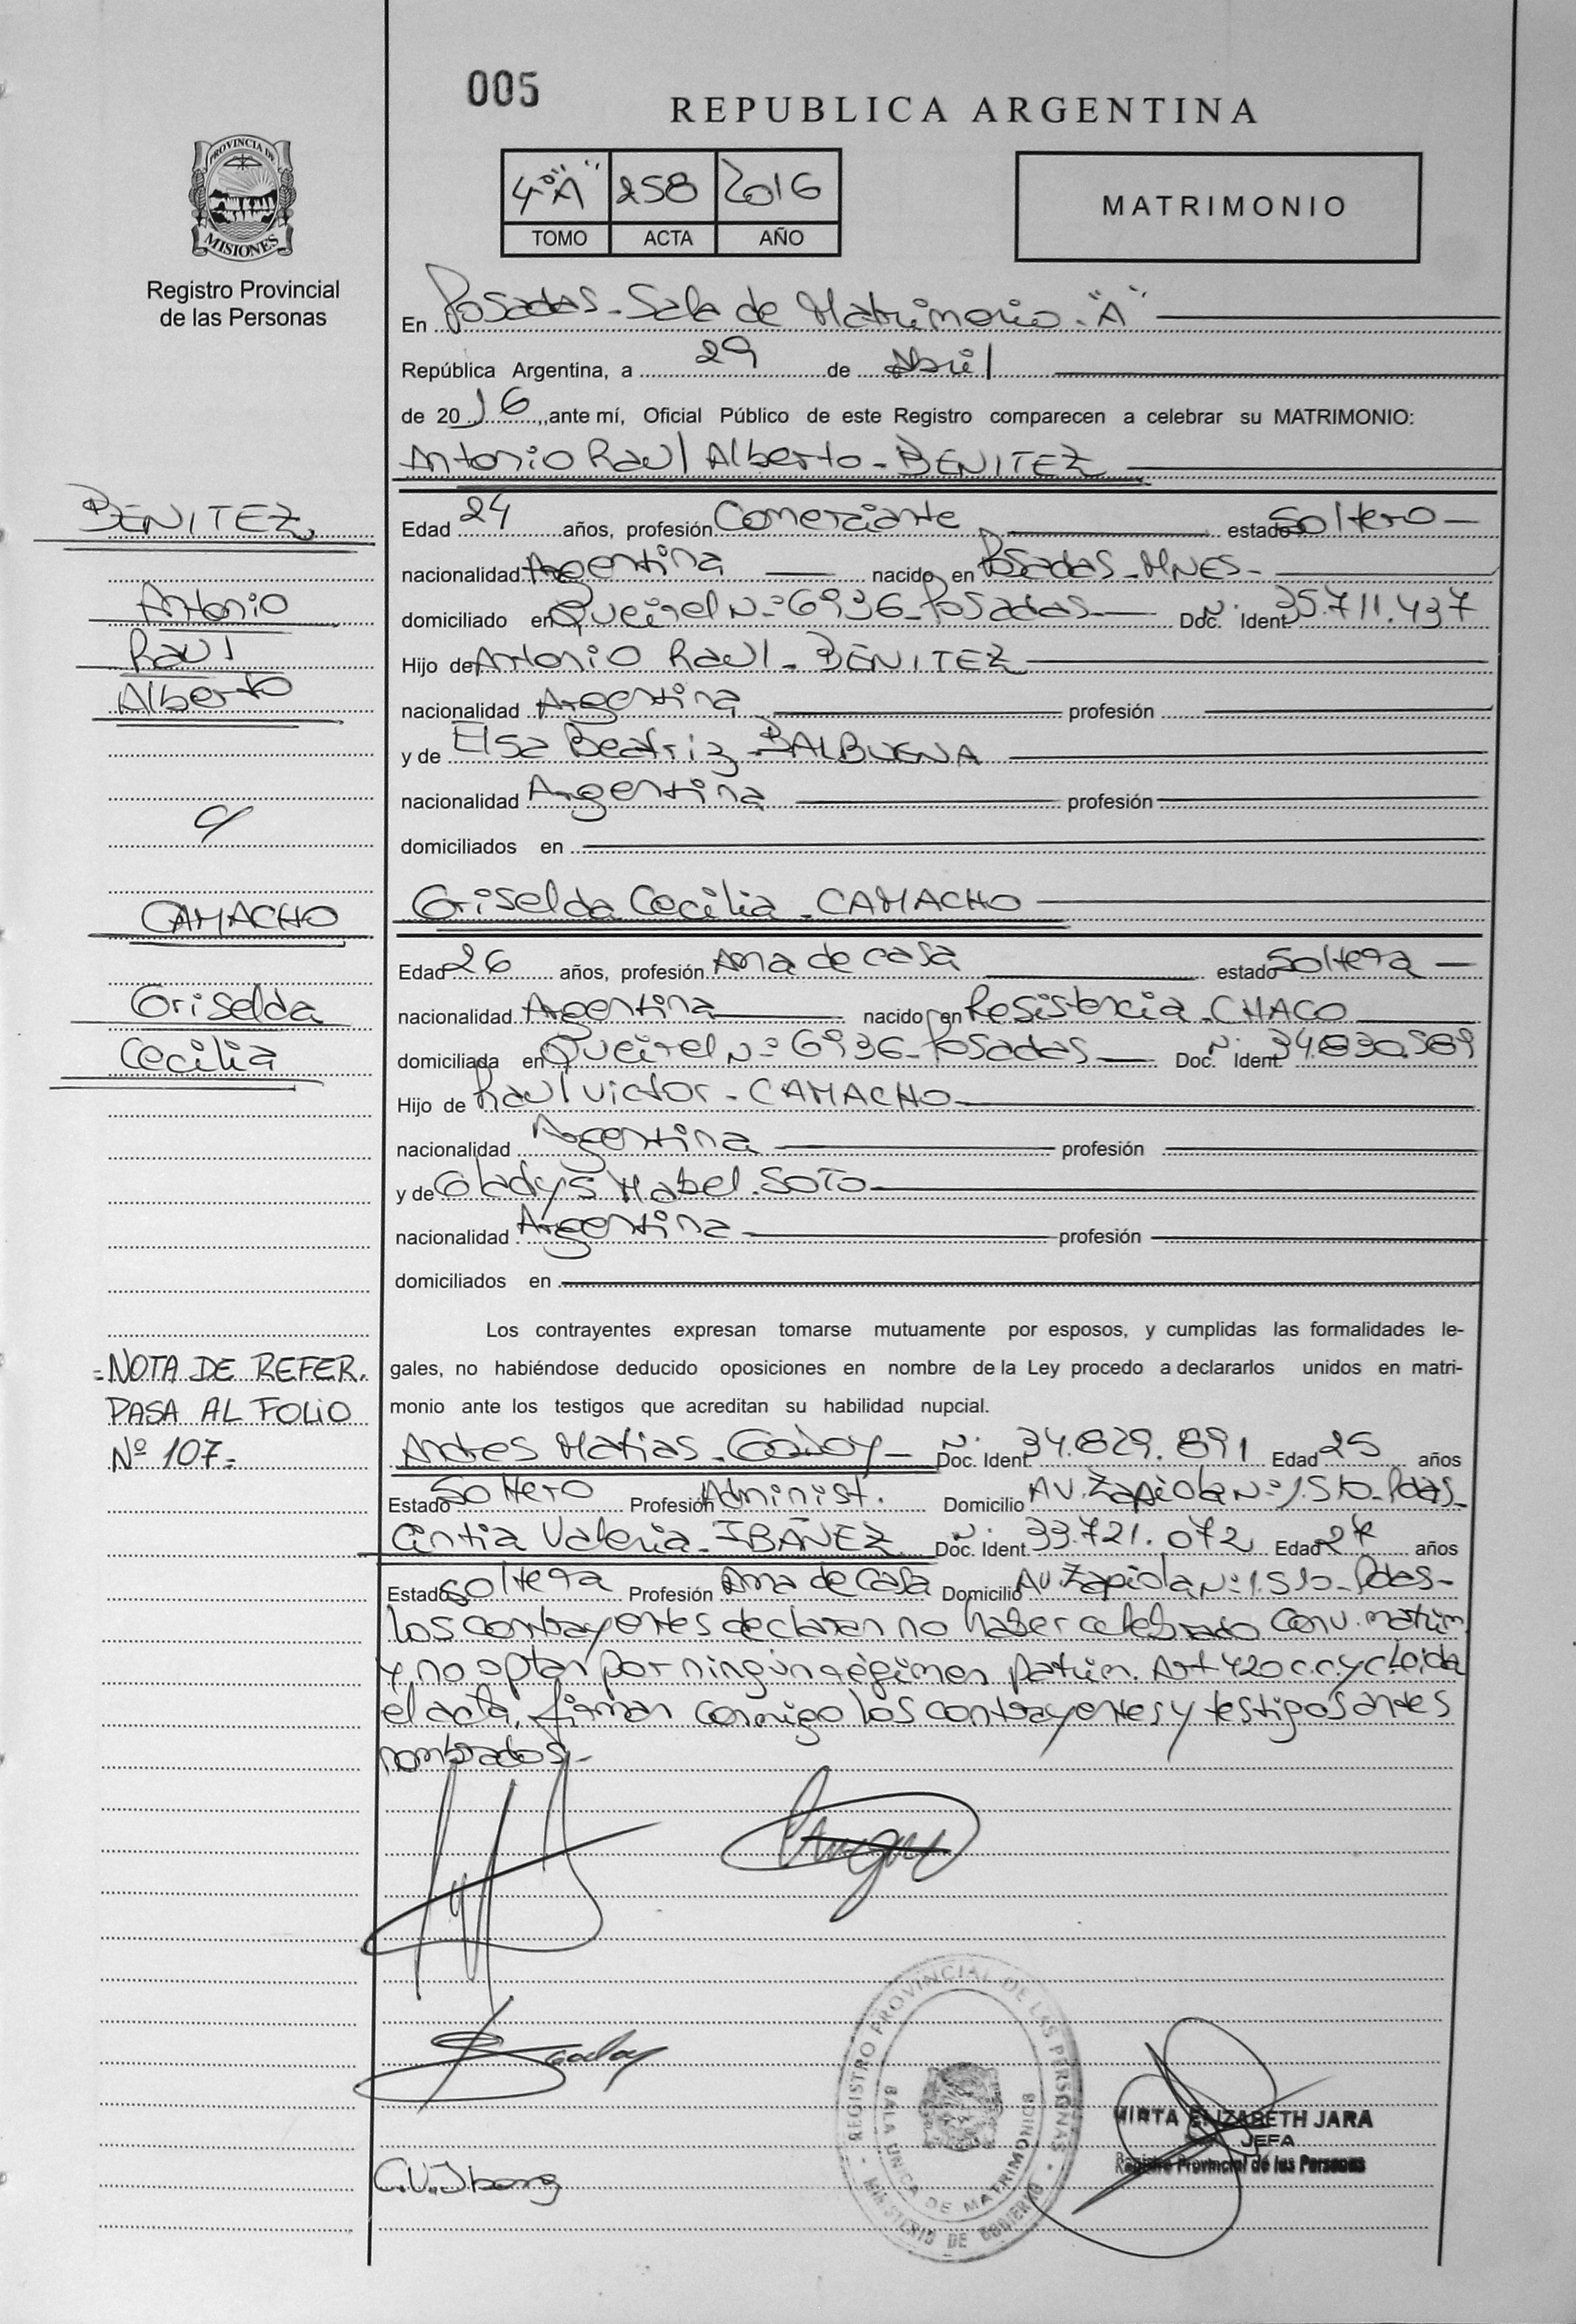 005
REPUBLICA ARGENTINA
PROVINCIA DE
MISIONES
Registro Provincial
de las Personas
4º"A" 258 2016
TOMO ACTA AÑO
MATRIMONIO
En Posadas - Sala de Matrimonio - "A"
República Argentina, a 29 de Abril
de 20 16, ante mí, Oficial Público de este Registro comparecen a celebrar su MATRIMONIO:
Antonio Raul Alberto - BENITEZ
BENITEZ
Antonio
Raul
Alberto
c/
CAMACHO
Griselda
Cecilia
Edad 24 años, profesión Comerciante estado Soltero
nacionalidad Argentina nacido en Posadas - MNES -
domiciliado en Queirel Nº 6936 - Posadas Doc. Ident. Nº 35.711.437
Hijo de Antonio Raul - BENITEZ
nacionalidad Argentina profesión
y de Elsa Beatriz - BALBUENA
nacionalidad Argentina profesión
domiciliados en
Griselda Cecilia - CAMACHO
Edad 26 años, profesión Ama de casa estado Soltera
nacionalidad Argentina nacido en Resistencia - CHACO
domiciliada en Queirel Nº 6936 - Posadas Doc. Ident. Nº 34.830.589
Hijo de Raul Victor - CAMACHO
nacionalidad Argentina profesión
y de Gladys Mabel - SOTO
nacionalidad Argentina profesión
domiciliados en
Los contrayentes expresan tomarse mutuamente por esposos, y cumplidas las formalidades le-
gales, no habiéndose deducido oposiciones en nombre de la Ley procedo a declararlos unidos en matri-
monio ante los testigos que acreditan su habilidad nupcial.
= NOTA DE REFER.
PASA AL FOLIO
Nº 107=
Andres Matias - Godoy - Doc. Ident. Nº 34.829.891 Edad 25 años
Estado Soltero Profesión Administ. Domicilio AV. Zapiola Nº 1.510 - Pdas -
Cintia Valeria - IBAÑEZ Doc. Ident. Nº 33.721.072 Edad 27 años
Estado Soltera Profesión Ama de Casa Domicilio AV. Zapiola Nº 1.510 - Pdas -
Los contrayentes declaran no haber celebrado conv. matrim.
y no optan por ningún régimen patrim. Art 420 c.c.y c. Leida
el acta, firman conmigo los contrayentes y testigos antes
nombrados -
C.V. Ibanez
REGISTRO PROVINCIAL DE LAS PERSONAS
SALA UNICA DE MATRIMONIOS
MINISTERIO DE GOBIERNO
MIRTA ELIZABETH JARA
JEFA
Registro Provincial de las Personas